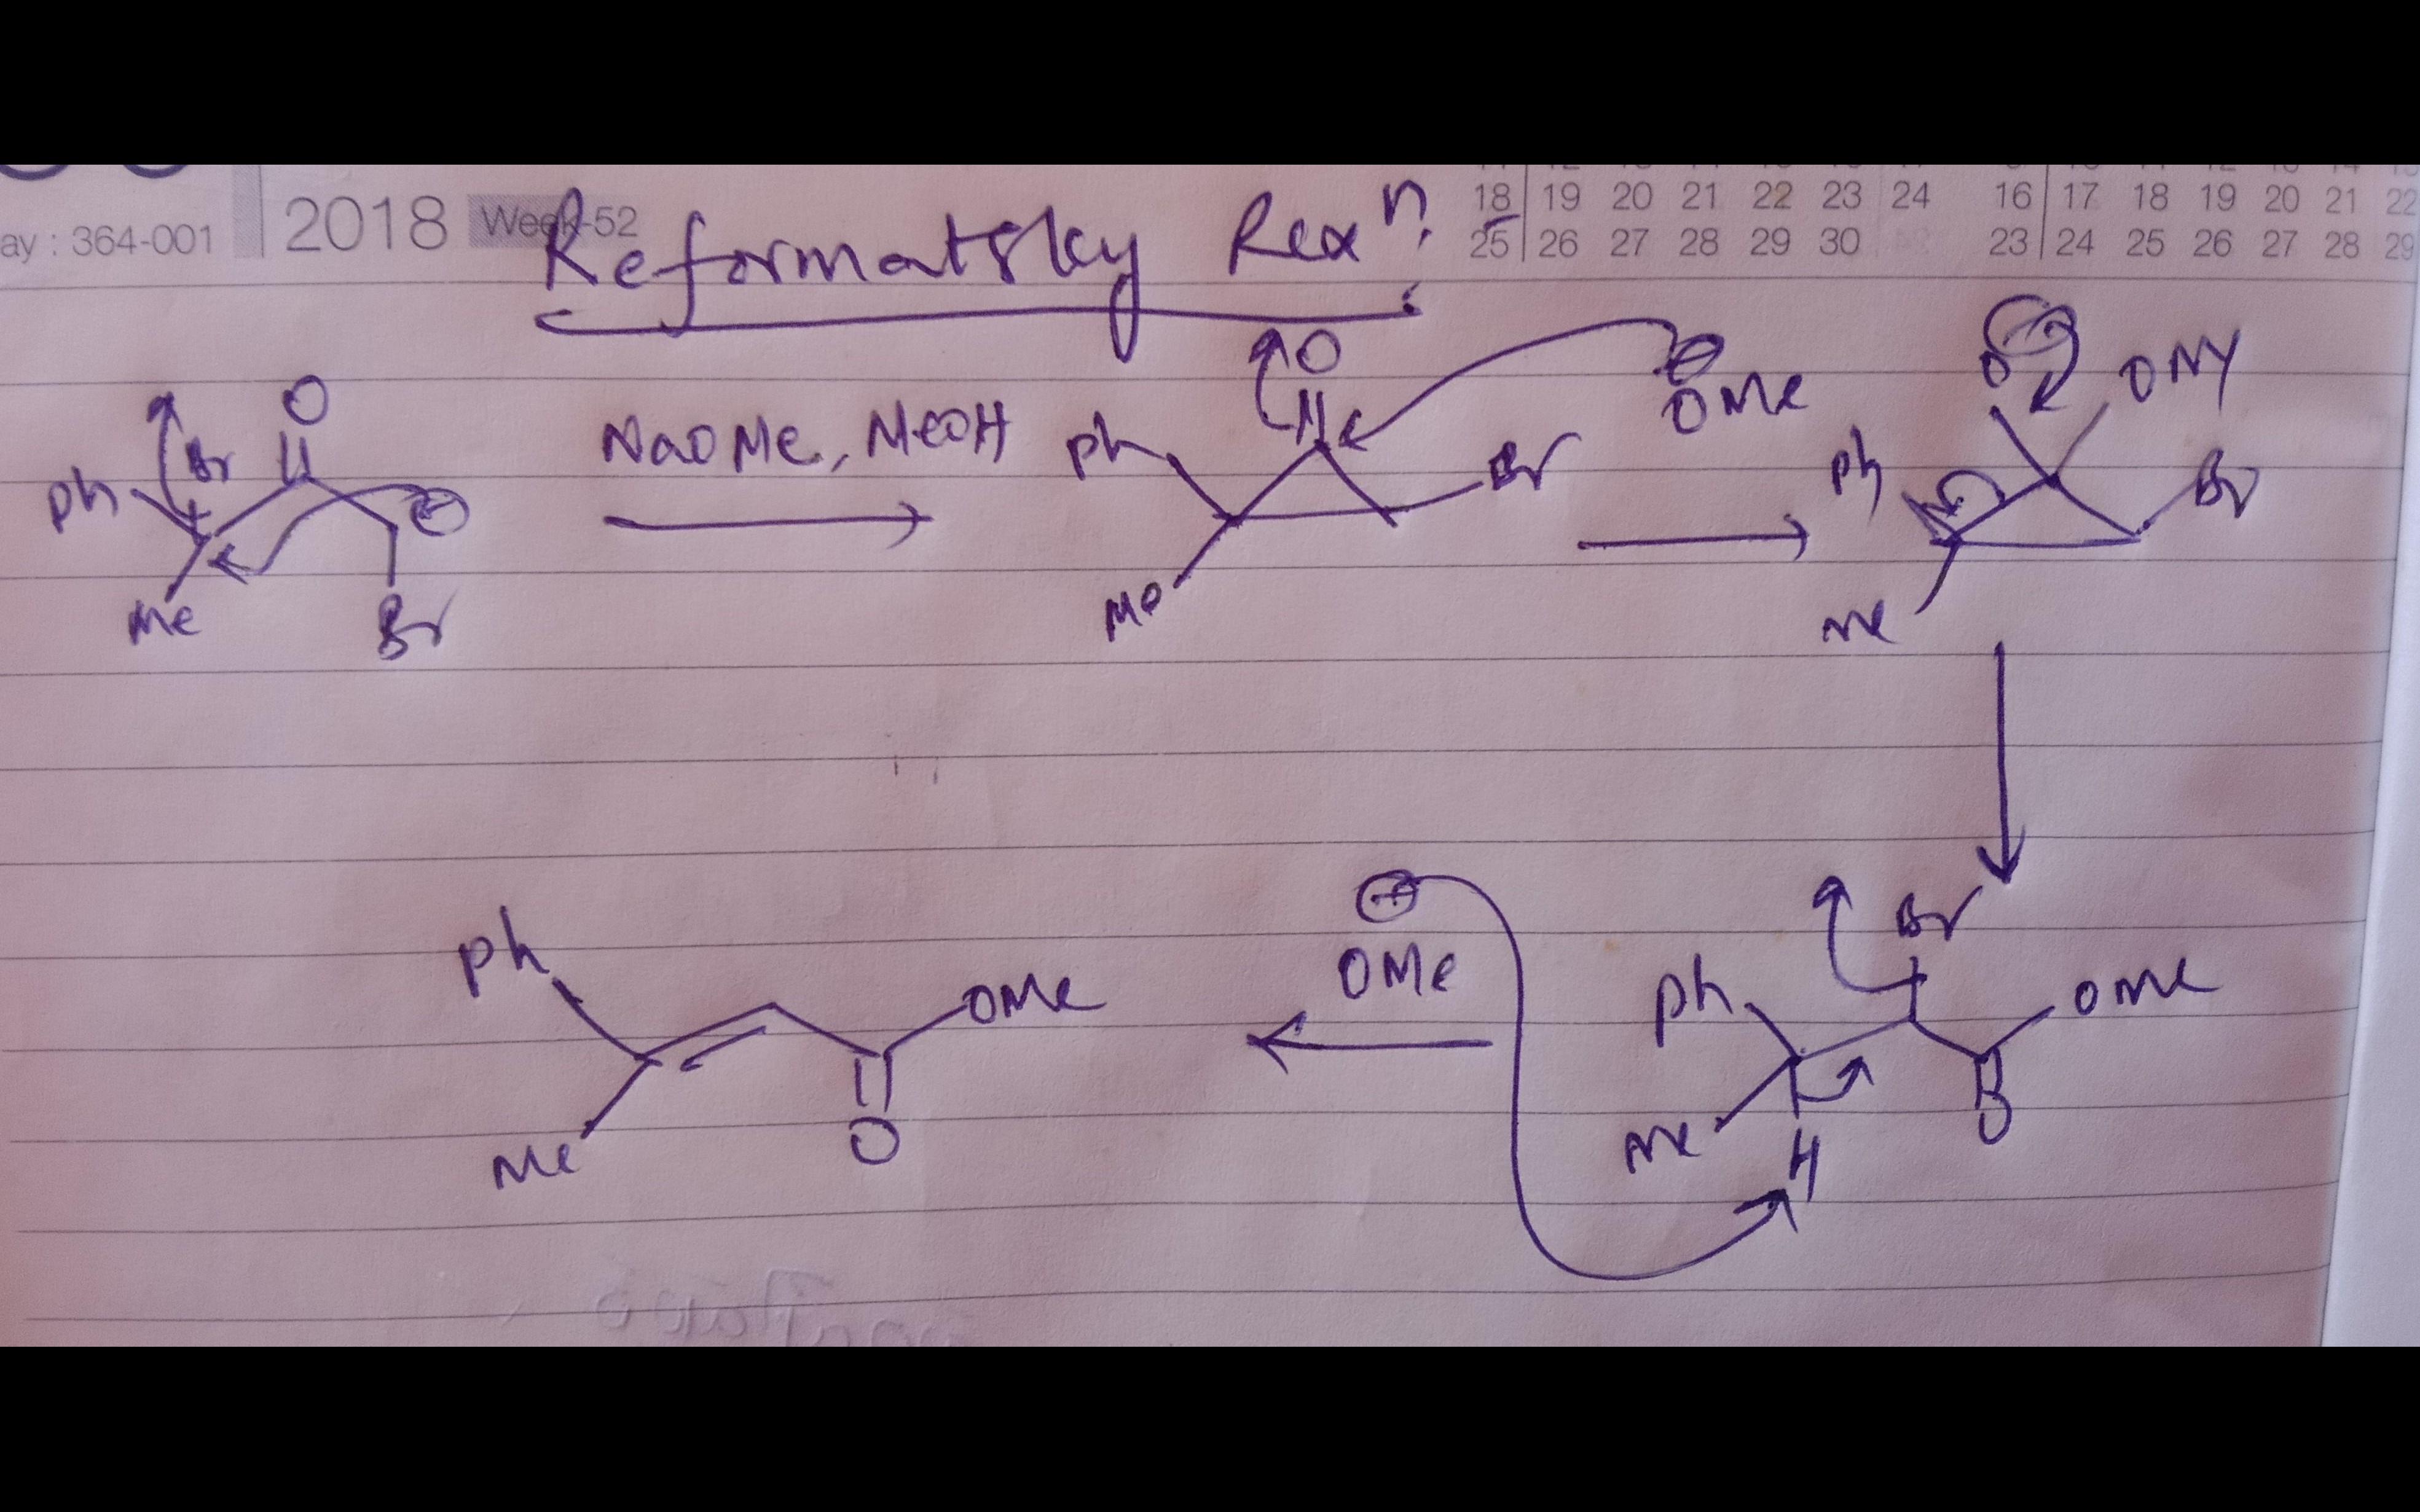 ay : 364-001 2018 Week-52
Reformatsky Rexn.
18 19 20 21 22 23 24 16 17 18 19 20 21 22
25 26 27 28 29 30 23 24 25 26 27 28 29
Ph Br O
Me Br
NaOMe, MeOH
O
Ph Br
Me
⊖
OMe
O OMe
Ph Br
Me
Br
Ph OMe
Me H O
⊖
OMe
Ph OMe
Me O